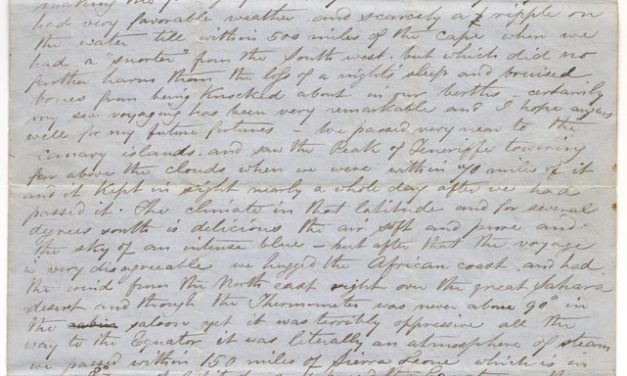 had very favorable weather and scarcely a ripple on
the water till within 500 miles of the Cape when we
had a "snorter" from the South west. but which did no
further harm than the loss of a nights sleep and bruised
bones from being knocked about in our berths - certainly
my sea voyaging has been very remarkable and I hope augurs
well for my future fortunes - We passed very near to the
Canary islands. and saw the Peak of Teneriffe towering
far above the clouds when we were within 40 miles of it
and it kept in sight nearly a whole day after we had
passed it. The climate in that latitude and for several
degrees south is delicious the air soft and pure and
the sky of an intense blue - but after that the voyage
is very disagreeable we hugged the African coast and had
the wind from the North east right over the great Sahara
desert and through the Thermometer was never above 90° in
the cabin saloon yet it was terribly oppressive all the
way to the Equator it was literally an atmosphere of steam
we passed within 150 miles of Sierra Leone which is in